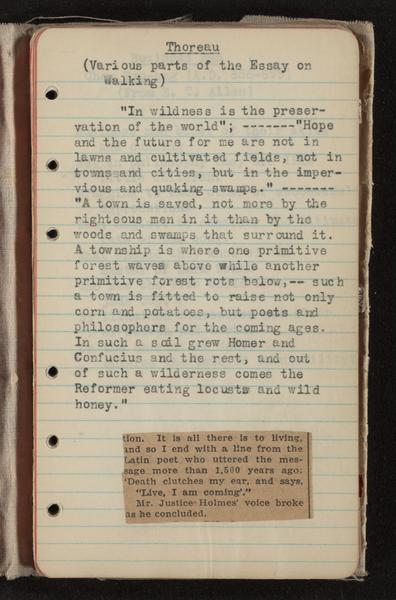 Thoreau
(Various parts of the Essay on
Walking)
"In wildness is the preser-
vation of the world"; -------"Hope
and the future for me are not in
lawns and cultivated fields, not in
towns and cities, but in the imper-
vious and quaking swamps." -------
"A town is saved, not more by the
righteous men in it than by the
woods and swamps that surround it.
A township is where one primitive
forest waves above while another
primitive forest rots below,-- such
a town is fitted to raise not only
corn and potatoes, but poets and
philosophers for the coming ages.
In such a soil grew Homer and
Confucius and the rest, and out
of such a wilderness comes the
Reformer eating locusts and wild
honey."
tion. It is all there is to living,
and so I end with a line from the
Latin poet who uttered the mes-
sage more than 1,500 years ago:
'Death clutches my ear, and says,
"Live, I am coming'."
Mr. Justice Holmes' voice broke
as he concluded.